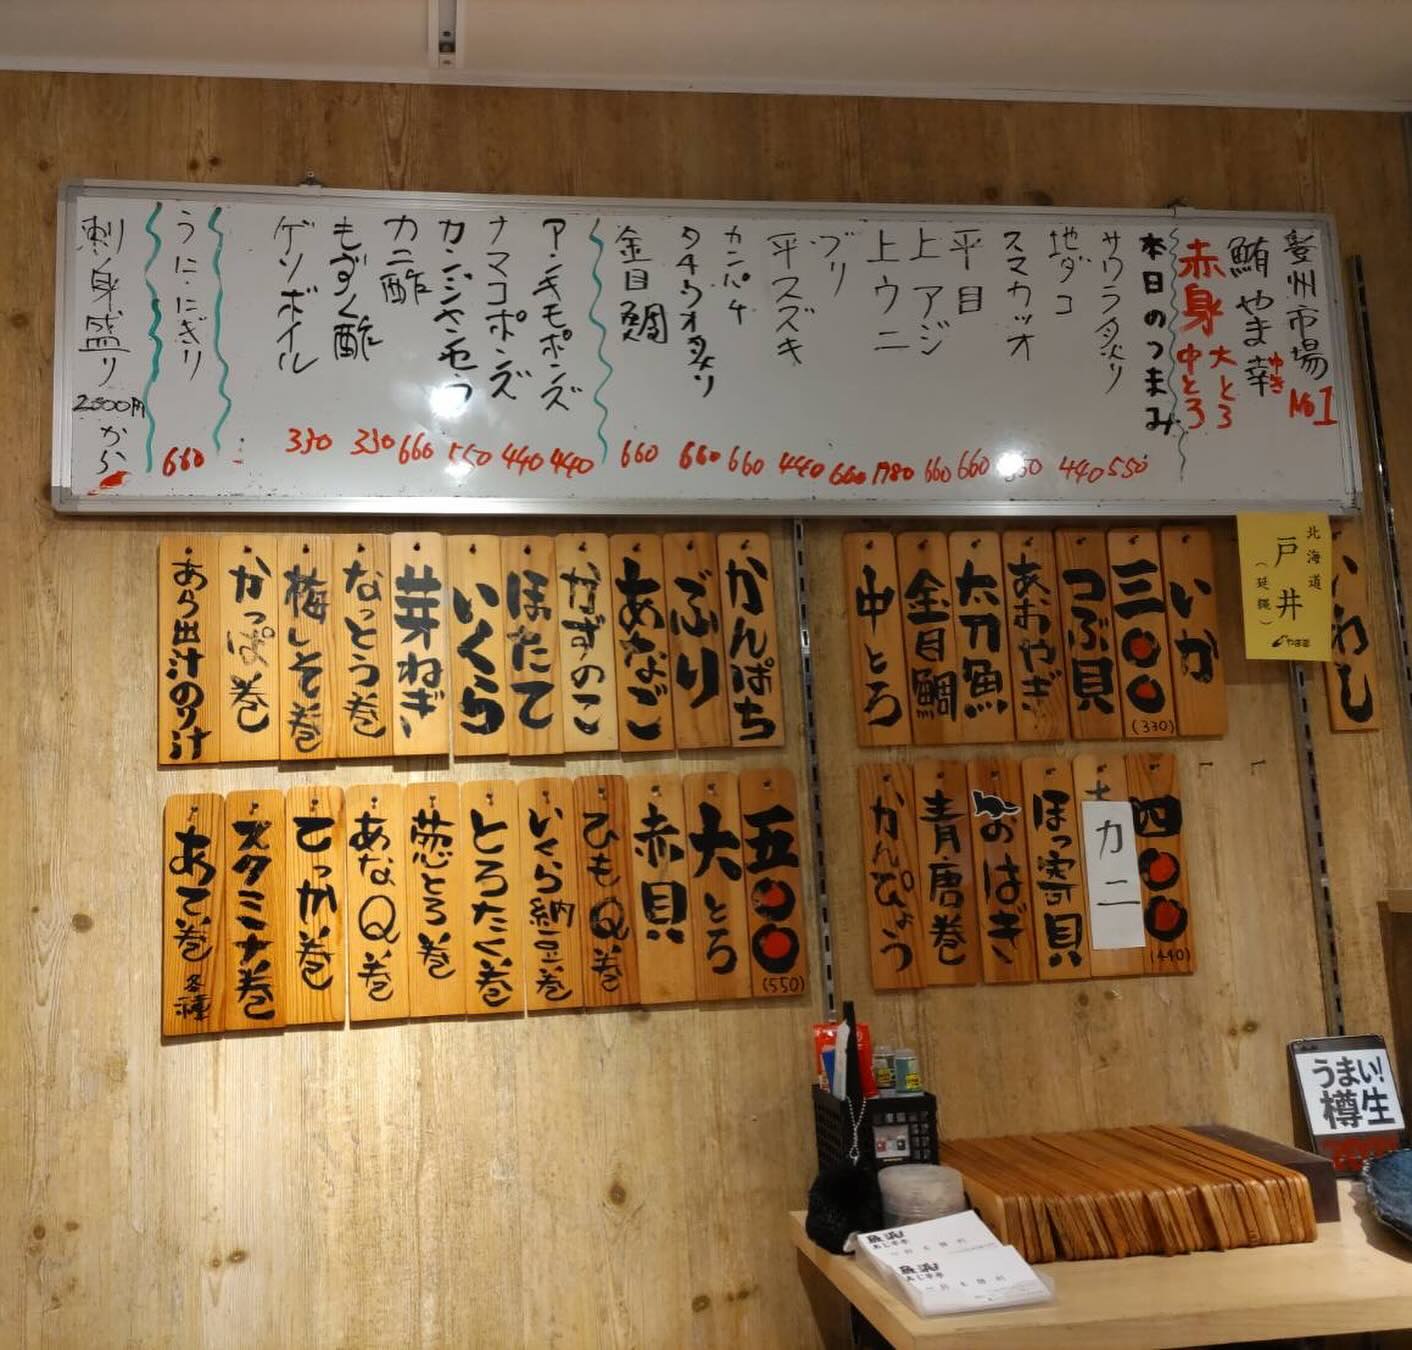 豊州市場
No1
鮪やま幸
ゆき
赤身
大とろ
中とろ
本日のつまみ
サワラ炙り 550
地ダコ 440
スマカツオ
平目 660
上アジ 660
上ウニ 1780
ブリ 660
平スズキ 440
カンパチ 660
タチウオ炙り 660
金目鯛 660
アンキモポンズ 440
ナマコポンズ 440
カンジャンセウ 550
カニ酢 660
もずく酢 330
ゲソボイル 330
うに・にぎり 660
刺身盛り 2500円から
いわし
北海道
戸井
(延縄)
やま幸
いか
三〇〇
(330)
つぶ貝
あおやぎ
太刀魚
金目鯛
中とろ
かんぱち
ぶり
あなご
かずのこ
ほたて
いくら
芽ねぎ
なっとう巻
梅しそ巻
かっぱ巻
あら出汁のり汁
四〇〇
(440)
カニ
ほっ寄貝
おはぎ
青唐巻
かんぴょう
五〇〇
(550)
大とろ
赤貝
ひもQ巻
いくら納豆巻
とろたく巻
葱とろ巻
あなQ巻
てっか巻
スタミナ巻
あて巻 各種
うまい!
樽生